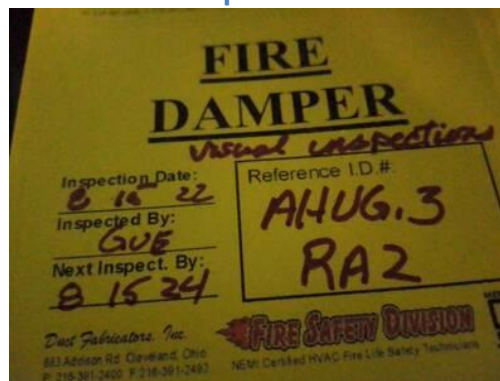 FIRE
DAMPER
visual inspections
Inspection Date:
Inspected By:
GUE
Next Inspect. By:
8 15 24
Reference I.D.#:
AHUG.3
RA2
Duct Fabricators, Inc.
883 Addison Rd. Cleveland, Ohio
P. 216-391-2400 F 216-391-2493
FIRE SAFETY DIVISION
NEMI Certified HVAC Fire Life Safety Technicians